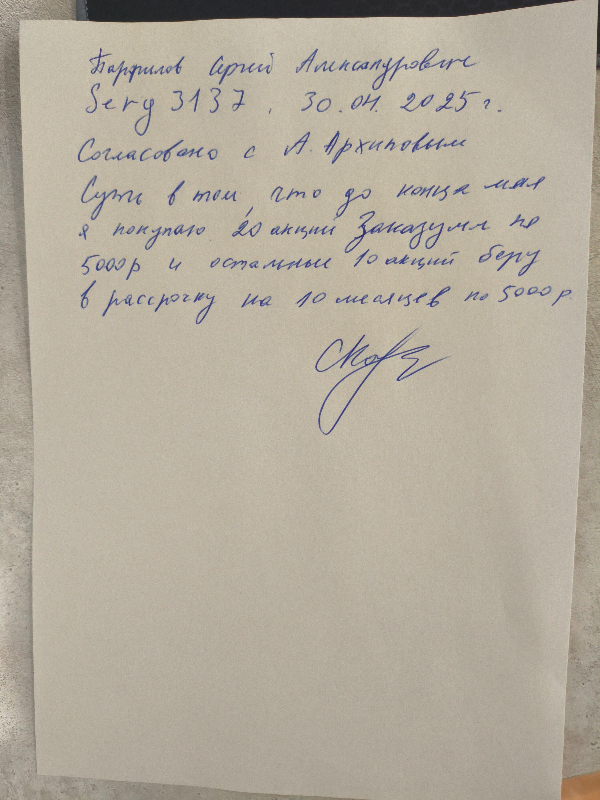 Парфилов Сергей Александрович
Serg 3137, 30.04.2025г.
Согласовано с А. Архиповым
Суть в том, что до конца мая
я покупаю 20 акций Заказуми по
5000р и остальные 10 акций беру
в рассрочку на 10 месяцев по 5000р.